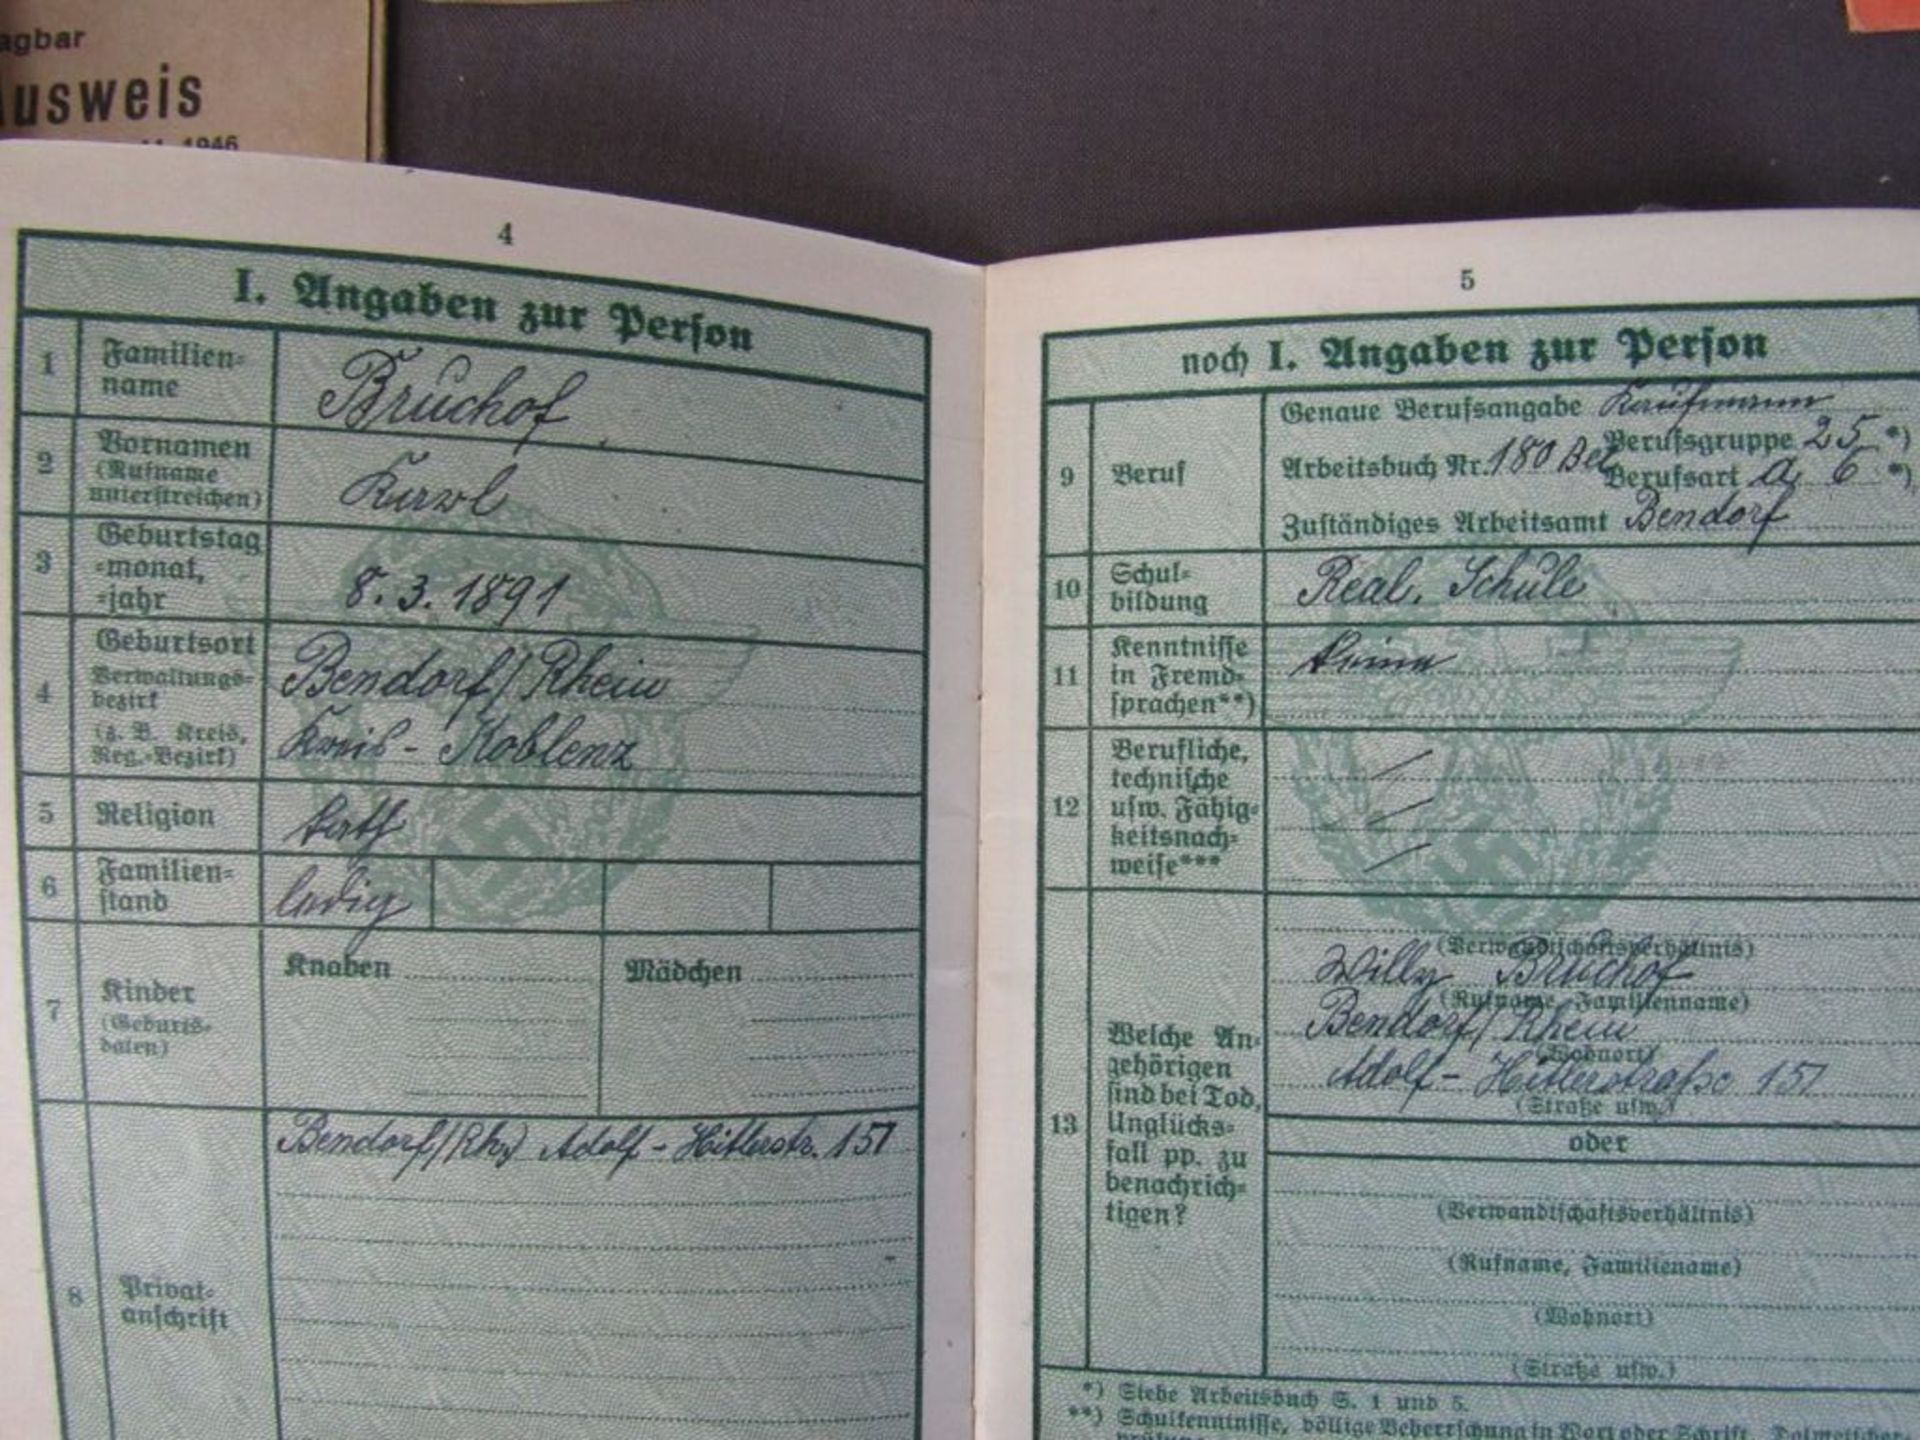 agbar
Ausweis
1946
4
I. Angaben zur Person
1
Familien-
name
Bruchof
2
Vornamen
(Rufname
unterstreichen)
Karl
3
Geburtstag
-monat,
-jahr
8.3.1891
4
Geburtsort
Verwaltungs-
bezirk
(z. B. Kreis,
Reg.-Bezirk)
Bendorf/Rhein
Kreis - Koblenz
5
Religion
kath
6
Familien-
stand
ledig
7
Kinder
(Geburts-
daten)
Knaben
Mädchen
8
Privat-
anschrift
Bendorf/Rh. Adolf-Hitlerstr. 151
5
noch I. Angaben zur Person
9
Beruf
Genaue Berufsangabe Kaufmann
Berufsgruppe 25 *)
Arbeitsbuch Nr. 180
Berufsart a 6 *)
Zuständiges Arbeitsamt Bendorf
10
Schul-
bildung
Real. Schule
11
Kenntnisse
in Fremd-
sprachen**)
keine
12
Berufliche,
technische
usw. Fähig-
keitsnach-
weise***
13
Welche An-
gehörigen
sind bei Tod,
Unglücks-
fall pp. zu
benachrich-
tigen?
(Verwandtschaftsverhältnis)
Willy Bruchof
(Rufname, Familienname)
Bendorf/Rhein
(Wohnort)
Adolf-Hitlerstraße 151
(Straße usw.)
oder
(Verwandtschaftsverhältnis)
(Rufname, Familienname)
(Wohnort)
(Straße usw.)
*) Siehe Arbeitsbuch S. 1 und 5.
**) Schulkenntnisse, völlige Beherrschung in Wort oder Schrift, Dolmetscher-